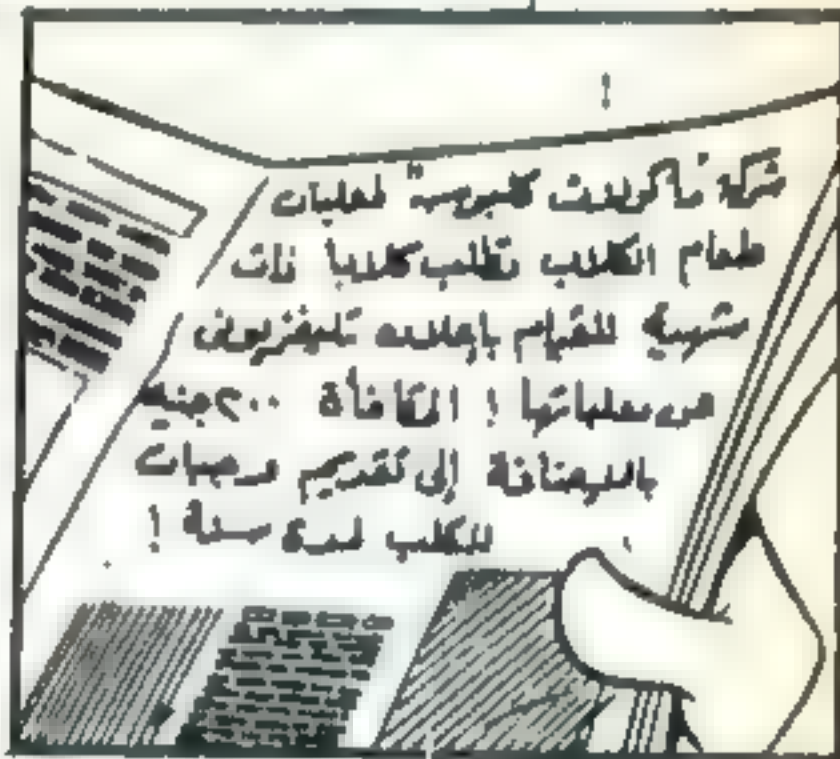 !
شركة "ماكولدث كلبوس" لمعلبات
طعام الكلاب تطلب كلاباً ذات
شهية للقيام بإعلان تليفزيونى
عن معلباتها ! المكافأة ٢٠٠ جنيه
بالإضافة إلى تقديم وجبات
للكلب لمدة سنة !